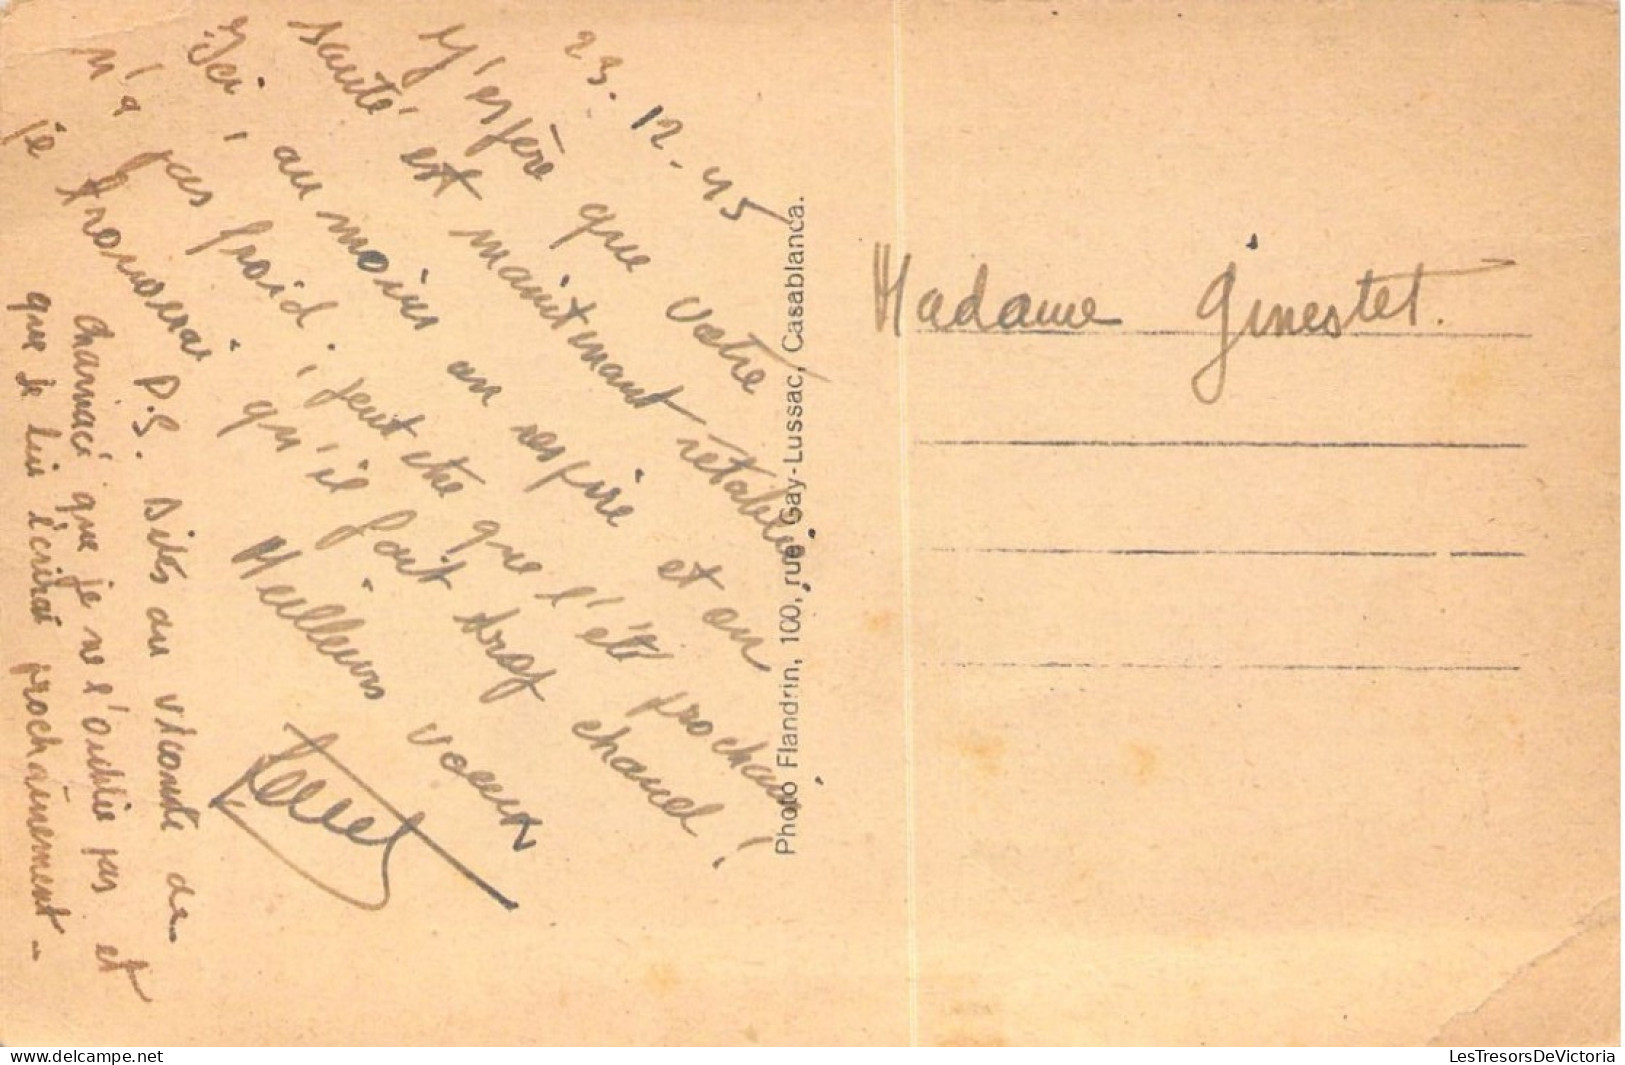 23.12.45
J'espère que votre
santé est maintenant rétablie.
Ici, au moins on respire et on
n'a pas froid ; peut etre que l'été prochain,
je trouverai qu'il fait trop chaud !
Meilleurs voeux
P.S. Dites au vicomte de
charnacé que je ne l'oublie pas et
que je lui écrirai prochainement -
Photo Flandrin, 100, rue Gay-Lussac, Casablanca.
Madame Ginestet.
delcampe.net
LesTresorsDeVictoria